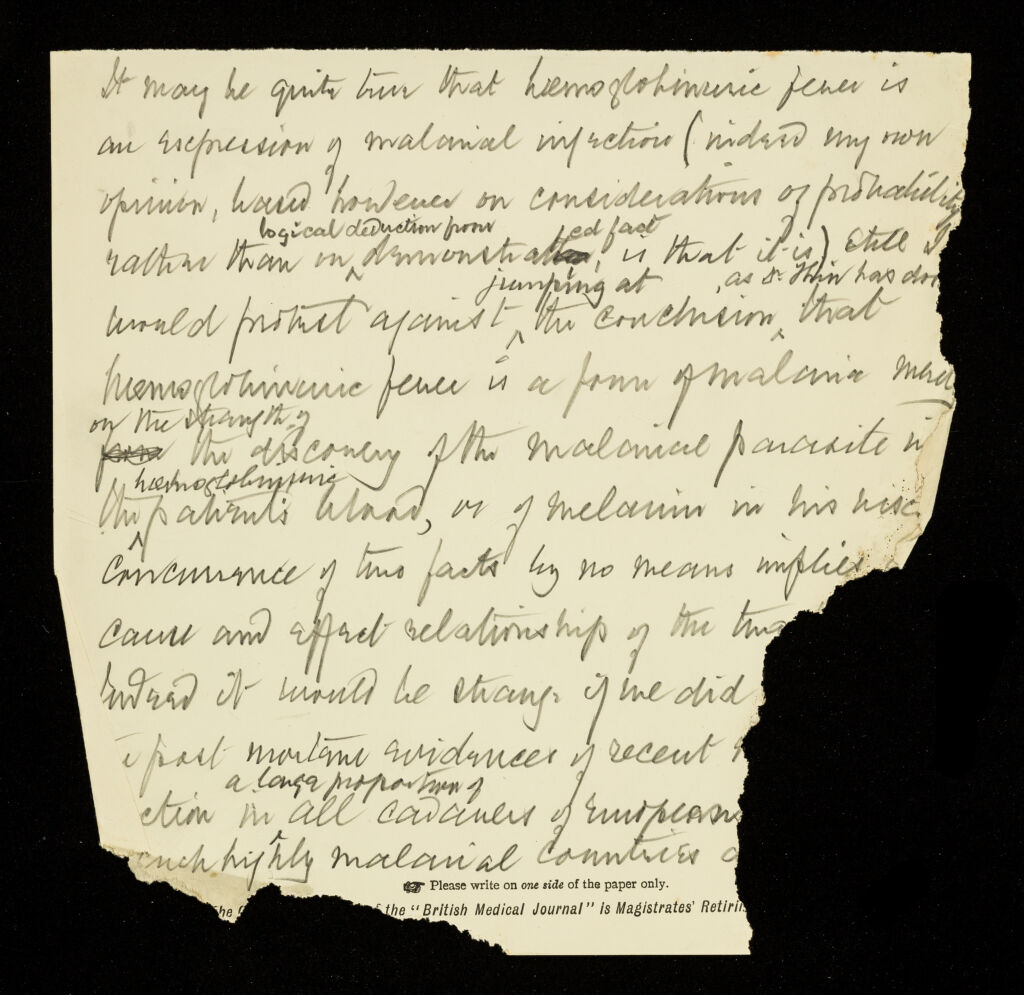 It may be quite true that hæmoglobinuric fever is
an expression of malarial infection (indeed my own
opinion, based however on considerations of probability
logical deduction from ed fact
rather than on demonstrat, is that it is) Still I
jumping at , as Dr. Thin has don
would protest against the conclusion that
hæmoglobinuric fever is a form of malaria
on the strength of
the discovery of the malarial parasite in
hæmoglobinuric
the patient's blood, or of melanin in his
concurrence of two facts by no means implies
cause and effect relationship of the
Indeed it would be strange if we did
post mortem evidences of recent
a large proportion of
ction in all cadavers of European
such highly malarial countries
Please write on one side of the paper only.
the "British Medical Journal" is Magistrates' Retirin